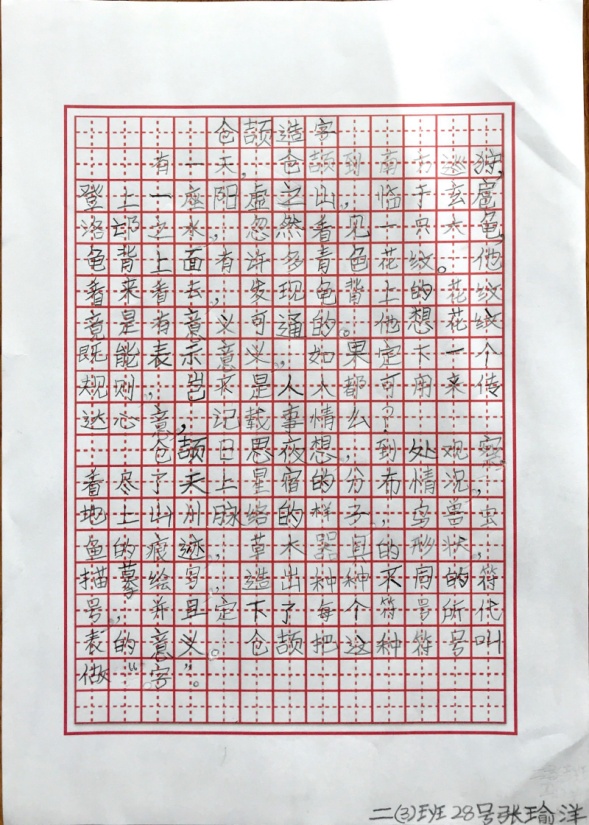 仓颉造字
有一天,仓颉到南方巡狩,
登上一座阳虚之出,临于玄扈
洛邙之水,忽然看见一只大龟,
龟背上面有许多青色花纹。他
看来看去,发现龟背上的花纹
竟是有意义可通的。他想花纹
既能表示意义,如果定下一个
规则,岂来是人人都可用来传
达心意,记载事情么?
仓颉日思夜想,到处观察,
看尽了天上星宿的分布情况,
地上山川脉络的样子,鸟兽虫
鱼的痕迹,草木器具的形状,
描摹绘写,造出种种不同的符
号,并且定下了每个符号所代
表的意义。仓颉把这种符号叫
做“字”。
二(3)班28号张瑜洋